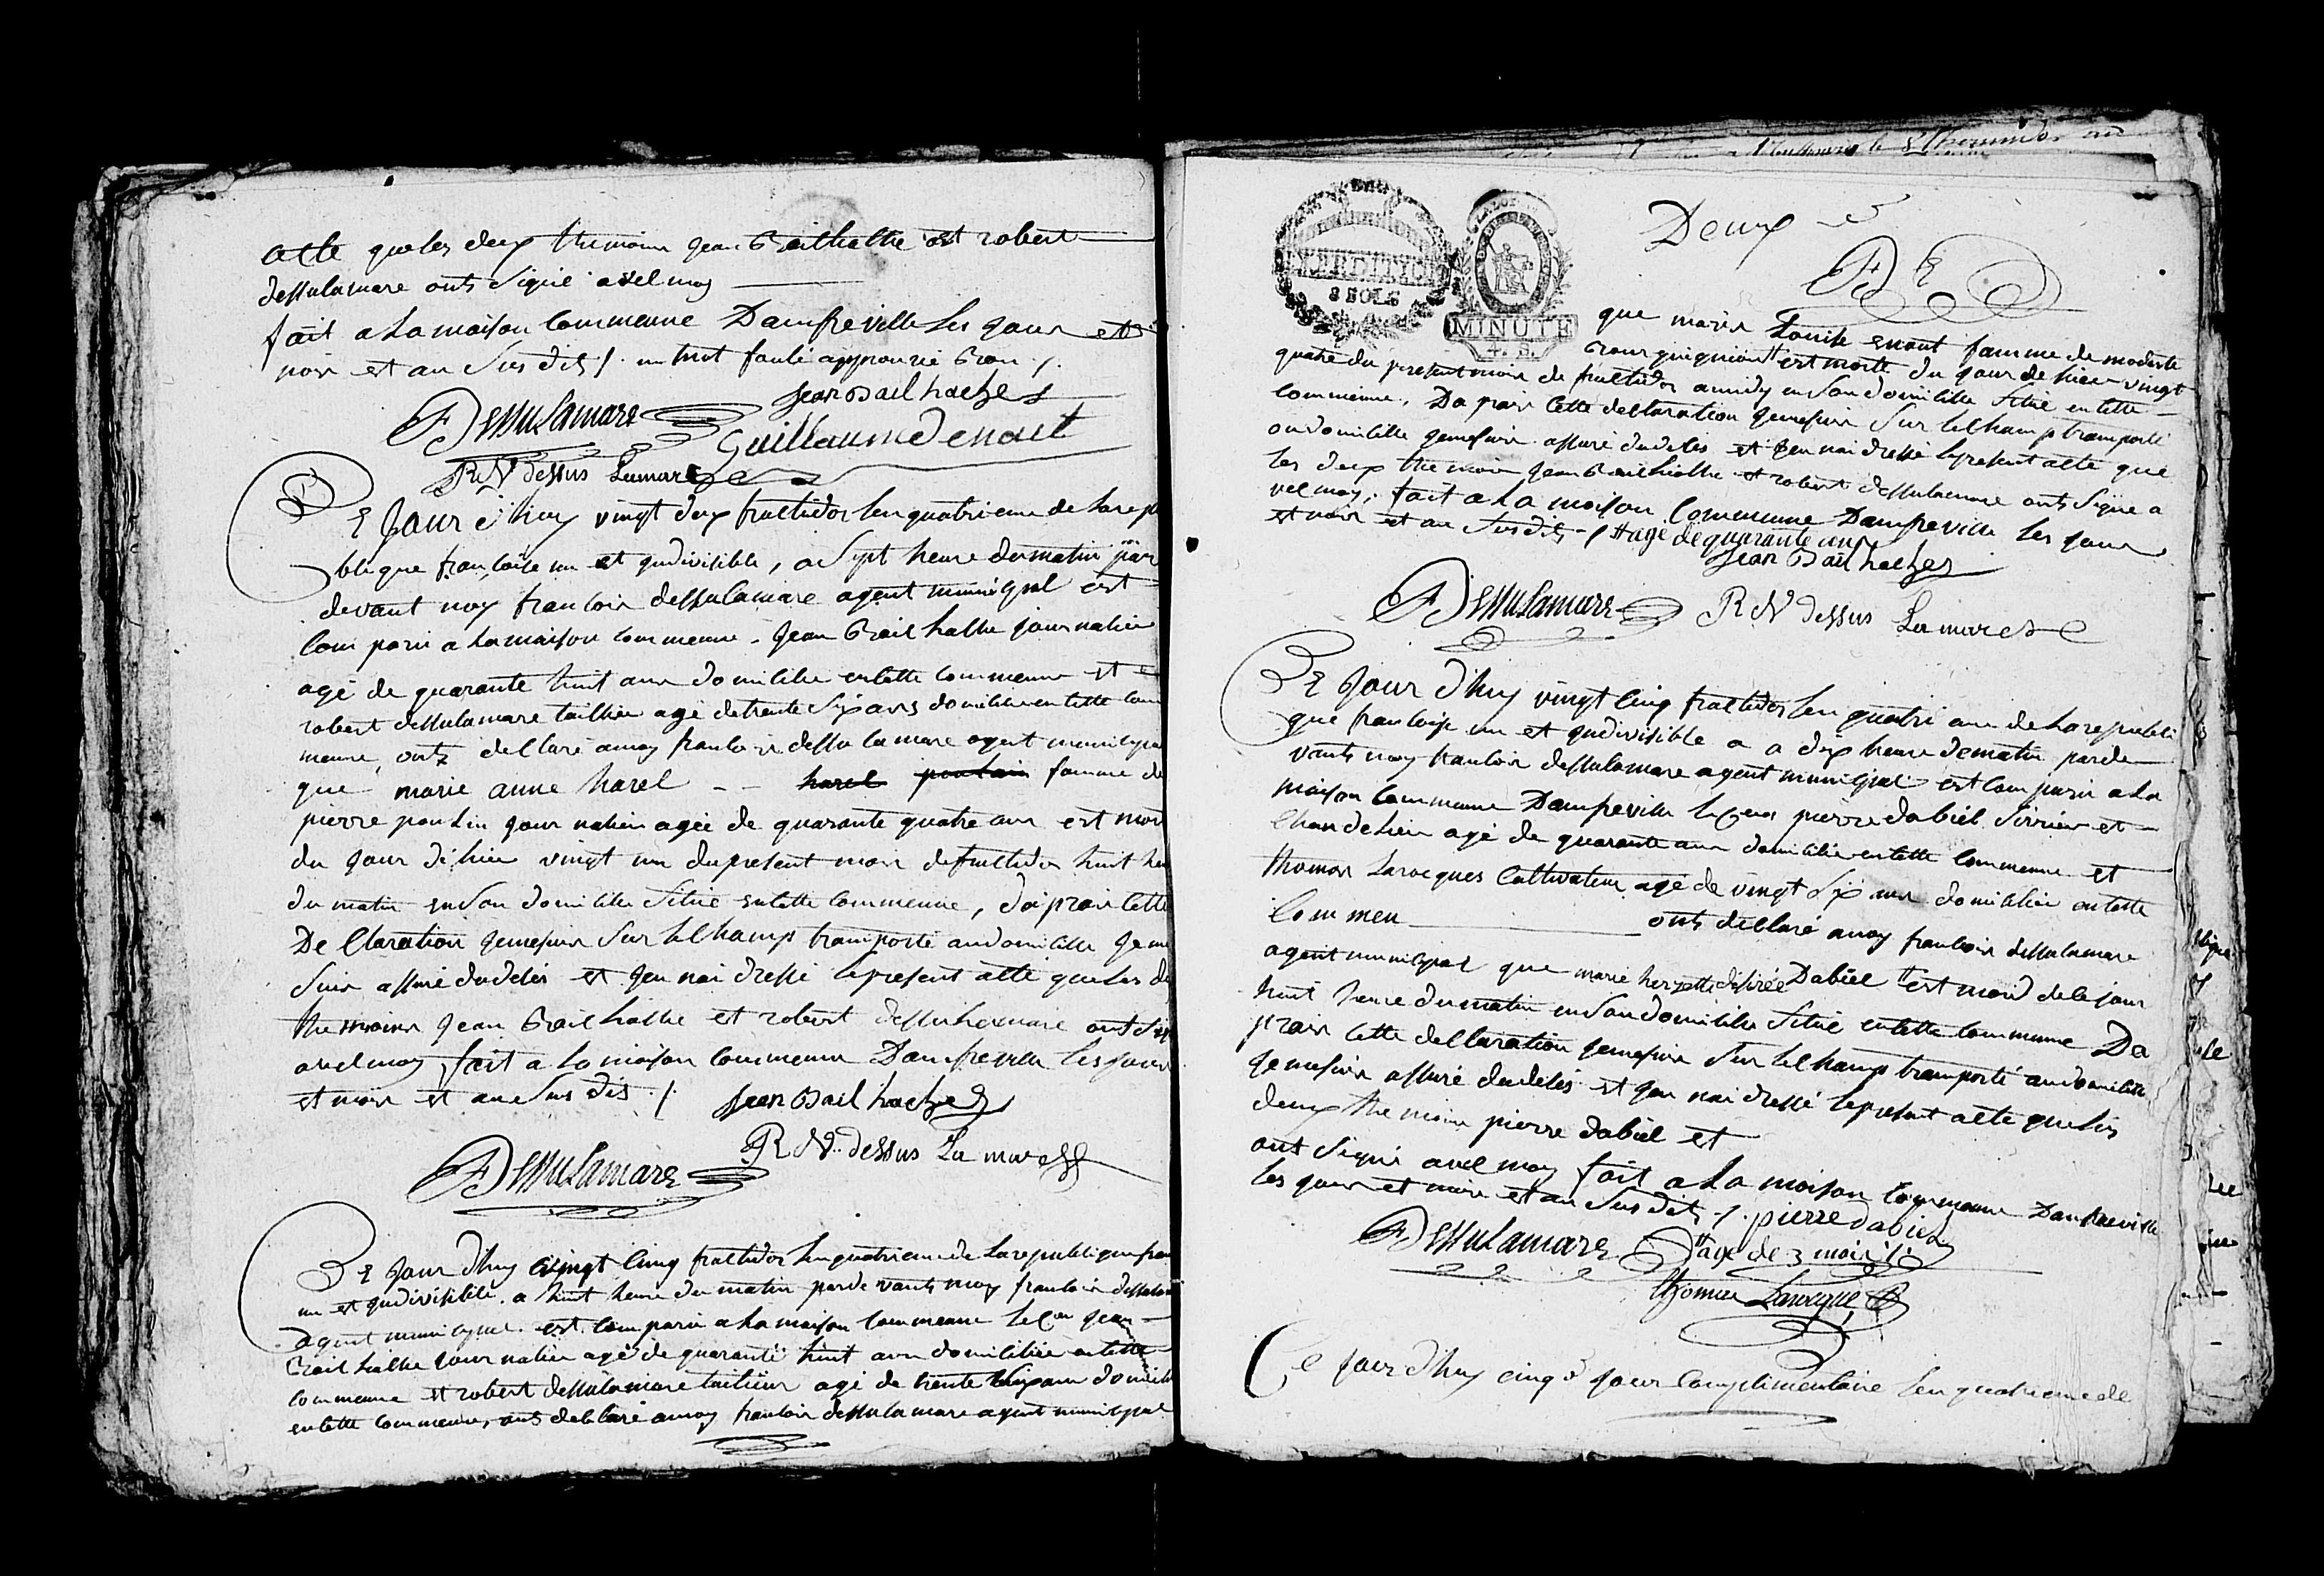 acte que les deux themoins jean Bailhache est robert
dessulamare onts signé avec moy
fait a la maison commeune Damfreville les jour et
mois et an susdits /. un mot foulé approuvé bon /.
Jean Bailhache
FDessulamare Guillaume Denault
RN dessus Lamare
Ce jour d'huy vingt deux fructidor l'en quatrieme de la repu
blique françoise une et yndivisible, a sept heure du matin par
devant moy francois dessulamare agent municipal est
comparu a la maison commeune jean Bailhache journalier
agé de quarante huit ans domicilie en cette commeune et
robert dessulamare taillieur agé de trente six ans domicilie en cette com
meune, onts declaré a moy francois dessulamare agent municipal
que marie anne harel -- harel poulain famme de
pierre poulin journalier agée de quarante quatre ans est mort
du jour d'hier vingt un du present mois de fructidor huit heu
du matin en son domicilie situé en cette commeune, d'aprais cette
Declaration je me suis sur le champs tramporté au domicille je me
suis assuré du deces et j'en nai dressé le present acte que les de
themoins jean Bailhache et robert dessulamare ont sig
avec moy fait a la maison commeune Damfreville les jour
et mois et an susdits /. Jean Bailhache
RN dessus La mare
FDessulamare
Ce jour d'huy vingt cinq fructidor l'en quatrieme de la republique fran
une et yndivisible a huit heure du matin par devants moy francois dessulam
agent municipal est comparu a la maison commeune le Cen jean
Bailhache journalier agé de quarante huit ans domicilié en cette
commeune et robert dessulamare tailieur agé de trente six ans domicili
en cette commeune, onts declaré a moy francois dessulamare agent municipal
EXPEDITION
8 SOLS
MINUTE
4. S.
Deux
que marie Louise enout famme de modeste
est morte du jour de hier vingt
quatre du present mois de fructidor a midy en son domicille situé en cette
commeune. Da prais cette declaration je me suis sur le champ tramporté
au domicille je me suis assuré du deces et j'en nai dressé le present acte que
les deux themoins jean Bailhache et robert dessulamare onts signe a
vec moy. fait a la maison commeune Damfreville les jour
et mois et an susdits /. agé de quarante ans
Jean Bailhache
FDessulamare RN dessus Lamare
Ce jour d'huy vingt cinq fructidor l'en quatrieme de la republi
que francoise une et yndivisible a a dix heure de matin par de
vants moy francois dessulamare agent municipal est comparu a la
maison commeune Damfreville le Cen pierre dabiel et
agé de quarante ans domicilié en cette commeune et
thomas Larocques Cultivateur agé de vingt six ans domicilié en cette
commeu onts declaré a moy francois dessulamare
agent municipal que marie desirée Dabiel est mord de ce jour
huit heure du matin en son domicilie situé en cette commeune Da
prais cette declaration je me suis sur le champ tramporté au domicille
je me suis assuré du deces et j'en nai dressé le present acte que les
deux themoins pierre dabiel et
ont signé avec moy fait a la maison commeune Damfreville
les jour et mois et an susdits /. pierre dabiel
FDessulamare agé de 3 mois /.
thomas Larocque
Ce jour d'huy cinq jour Complimentaire l'en quatrieme de